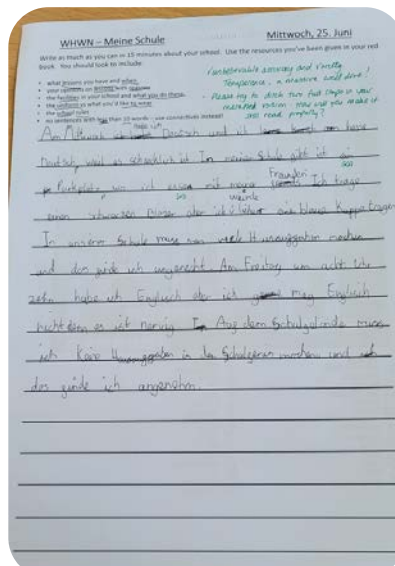 WHWN – Meine Schule
Mittwoch, 25. Juni
Write as much as you can in 15 minutes about your school. Use the resources you've been given in your red
book. You should look to include:
what lessons you have and when
your opinions on lessons with reasons
the facilities in your school and what you do there
the uniform and what you'd like to wear
the school rules
no sentences with less than 10 words - use connectives instead!
Unbelievable accuracy and variety
Temperance, a massive well done!
Please try to ditch two full stops in your
version. How will you make it
still read properly?
Am Mittwoch habe ich Deutsch und ich hasse
Deutsch, weil es schrecklich ist. In meiner Schule gibt es ein
Parkplatz, wo ich mit meine Freunden Ich trage
einen schwarzen Blazer aber ich würde lieber eine blaue Kappe tragen
In unserer Schule muss man viele Hausaufgaben machen
und das finde ich ungerecht. Am Freitag, um acht Uhr
zehn habe ich Englisch aber ich mag Englisch
nicht denn es ist nervig. Auf dem Schulgelände muss
ich in den machen und
das finde ich angenehm.